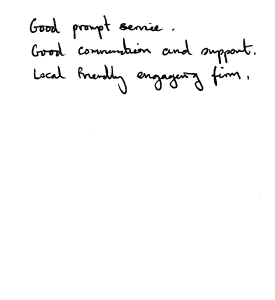 Good prompt service.
Good communication and support.
Local friendly engaging firm.